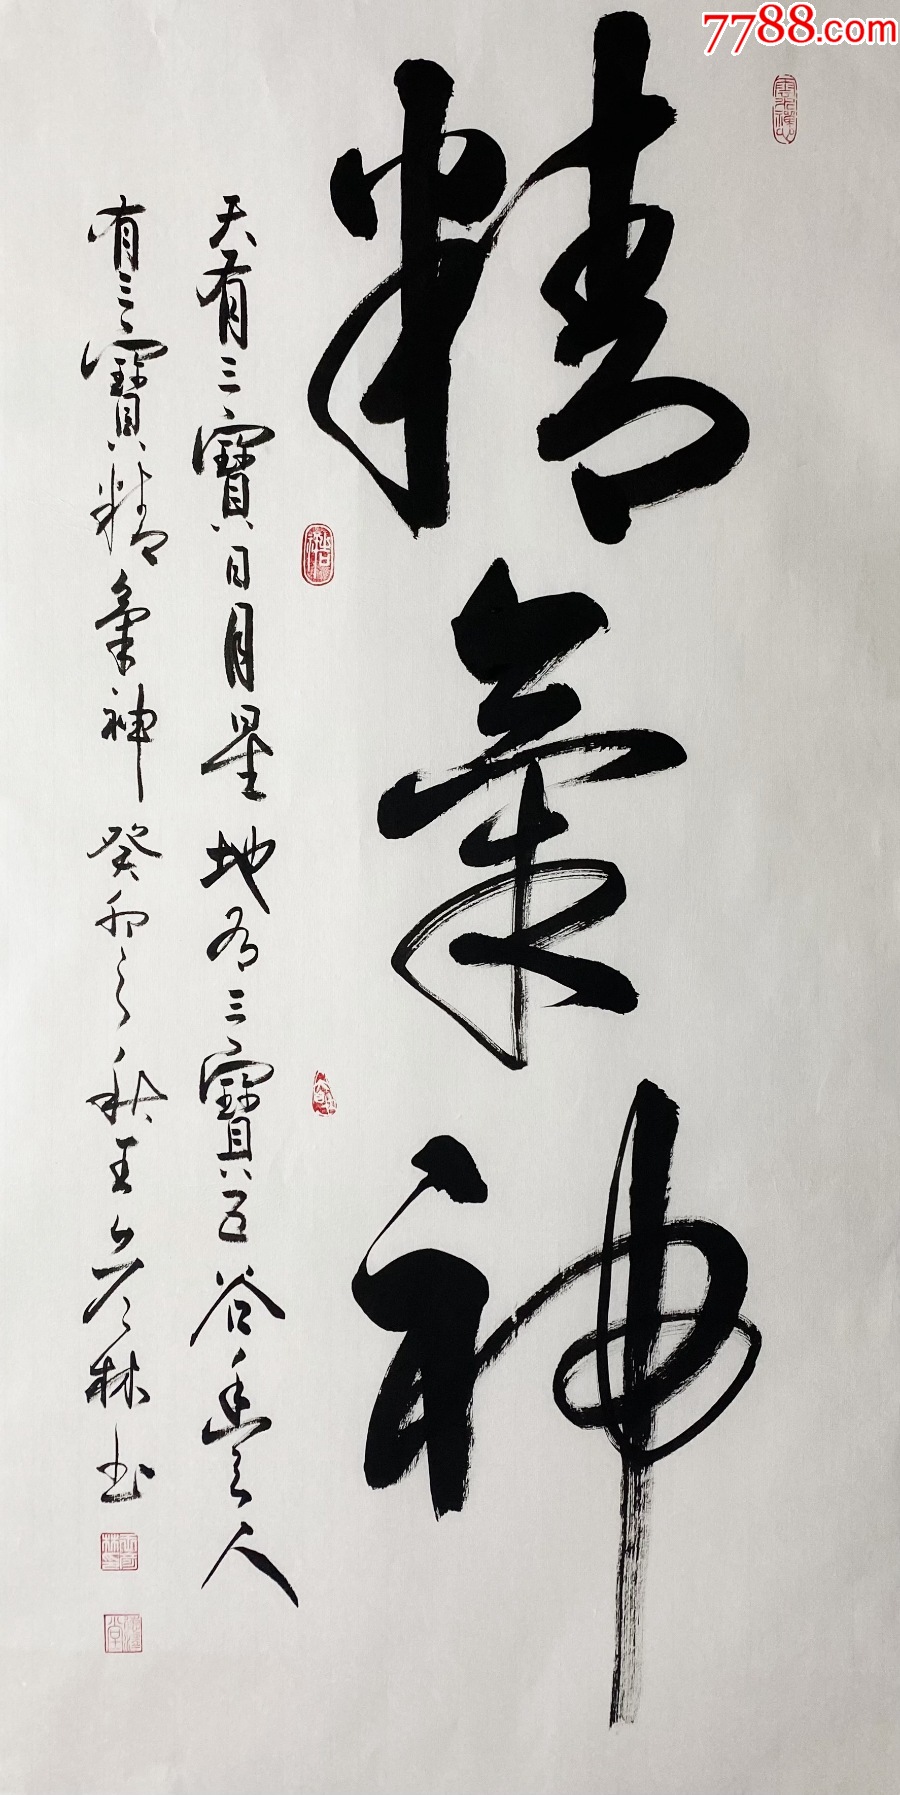 7788.com
精氣神
天有三寶日月星地有三寶五谷豊人
有三寶精氣神癸卯之秋王彦林书